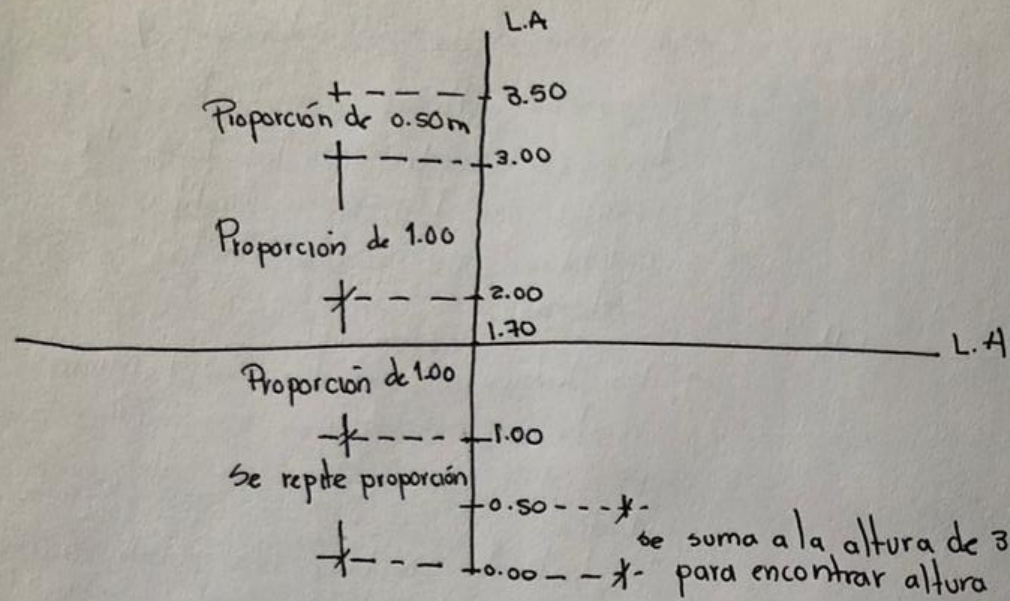 L.A
3.50
Proporción de 0.50m
3.00
Proporción de 1.00
2.00
1.70
L.A
Proporción de 1.00
1.00
Se repite proporción
0.50
se suma a la altura de 3
0.00
para encontrar altura